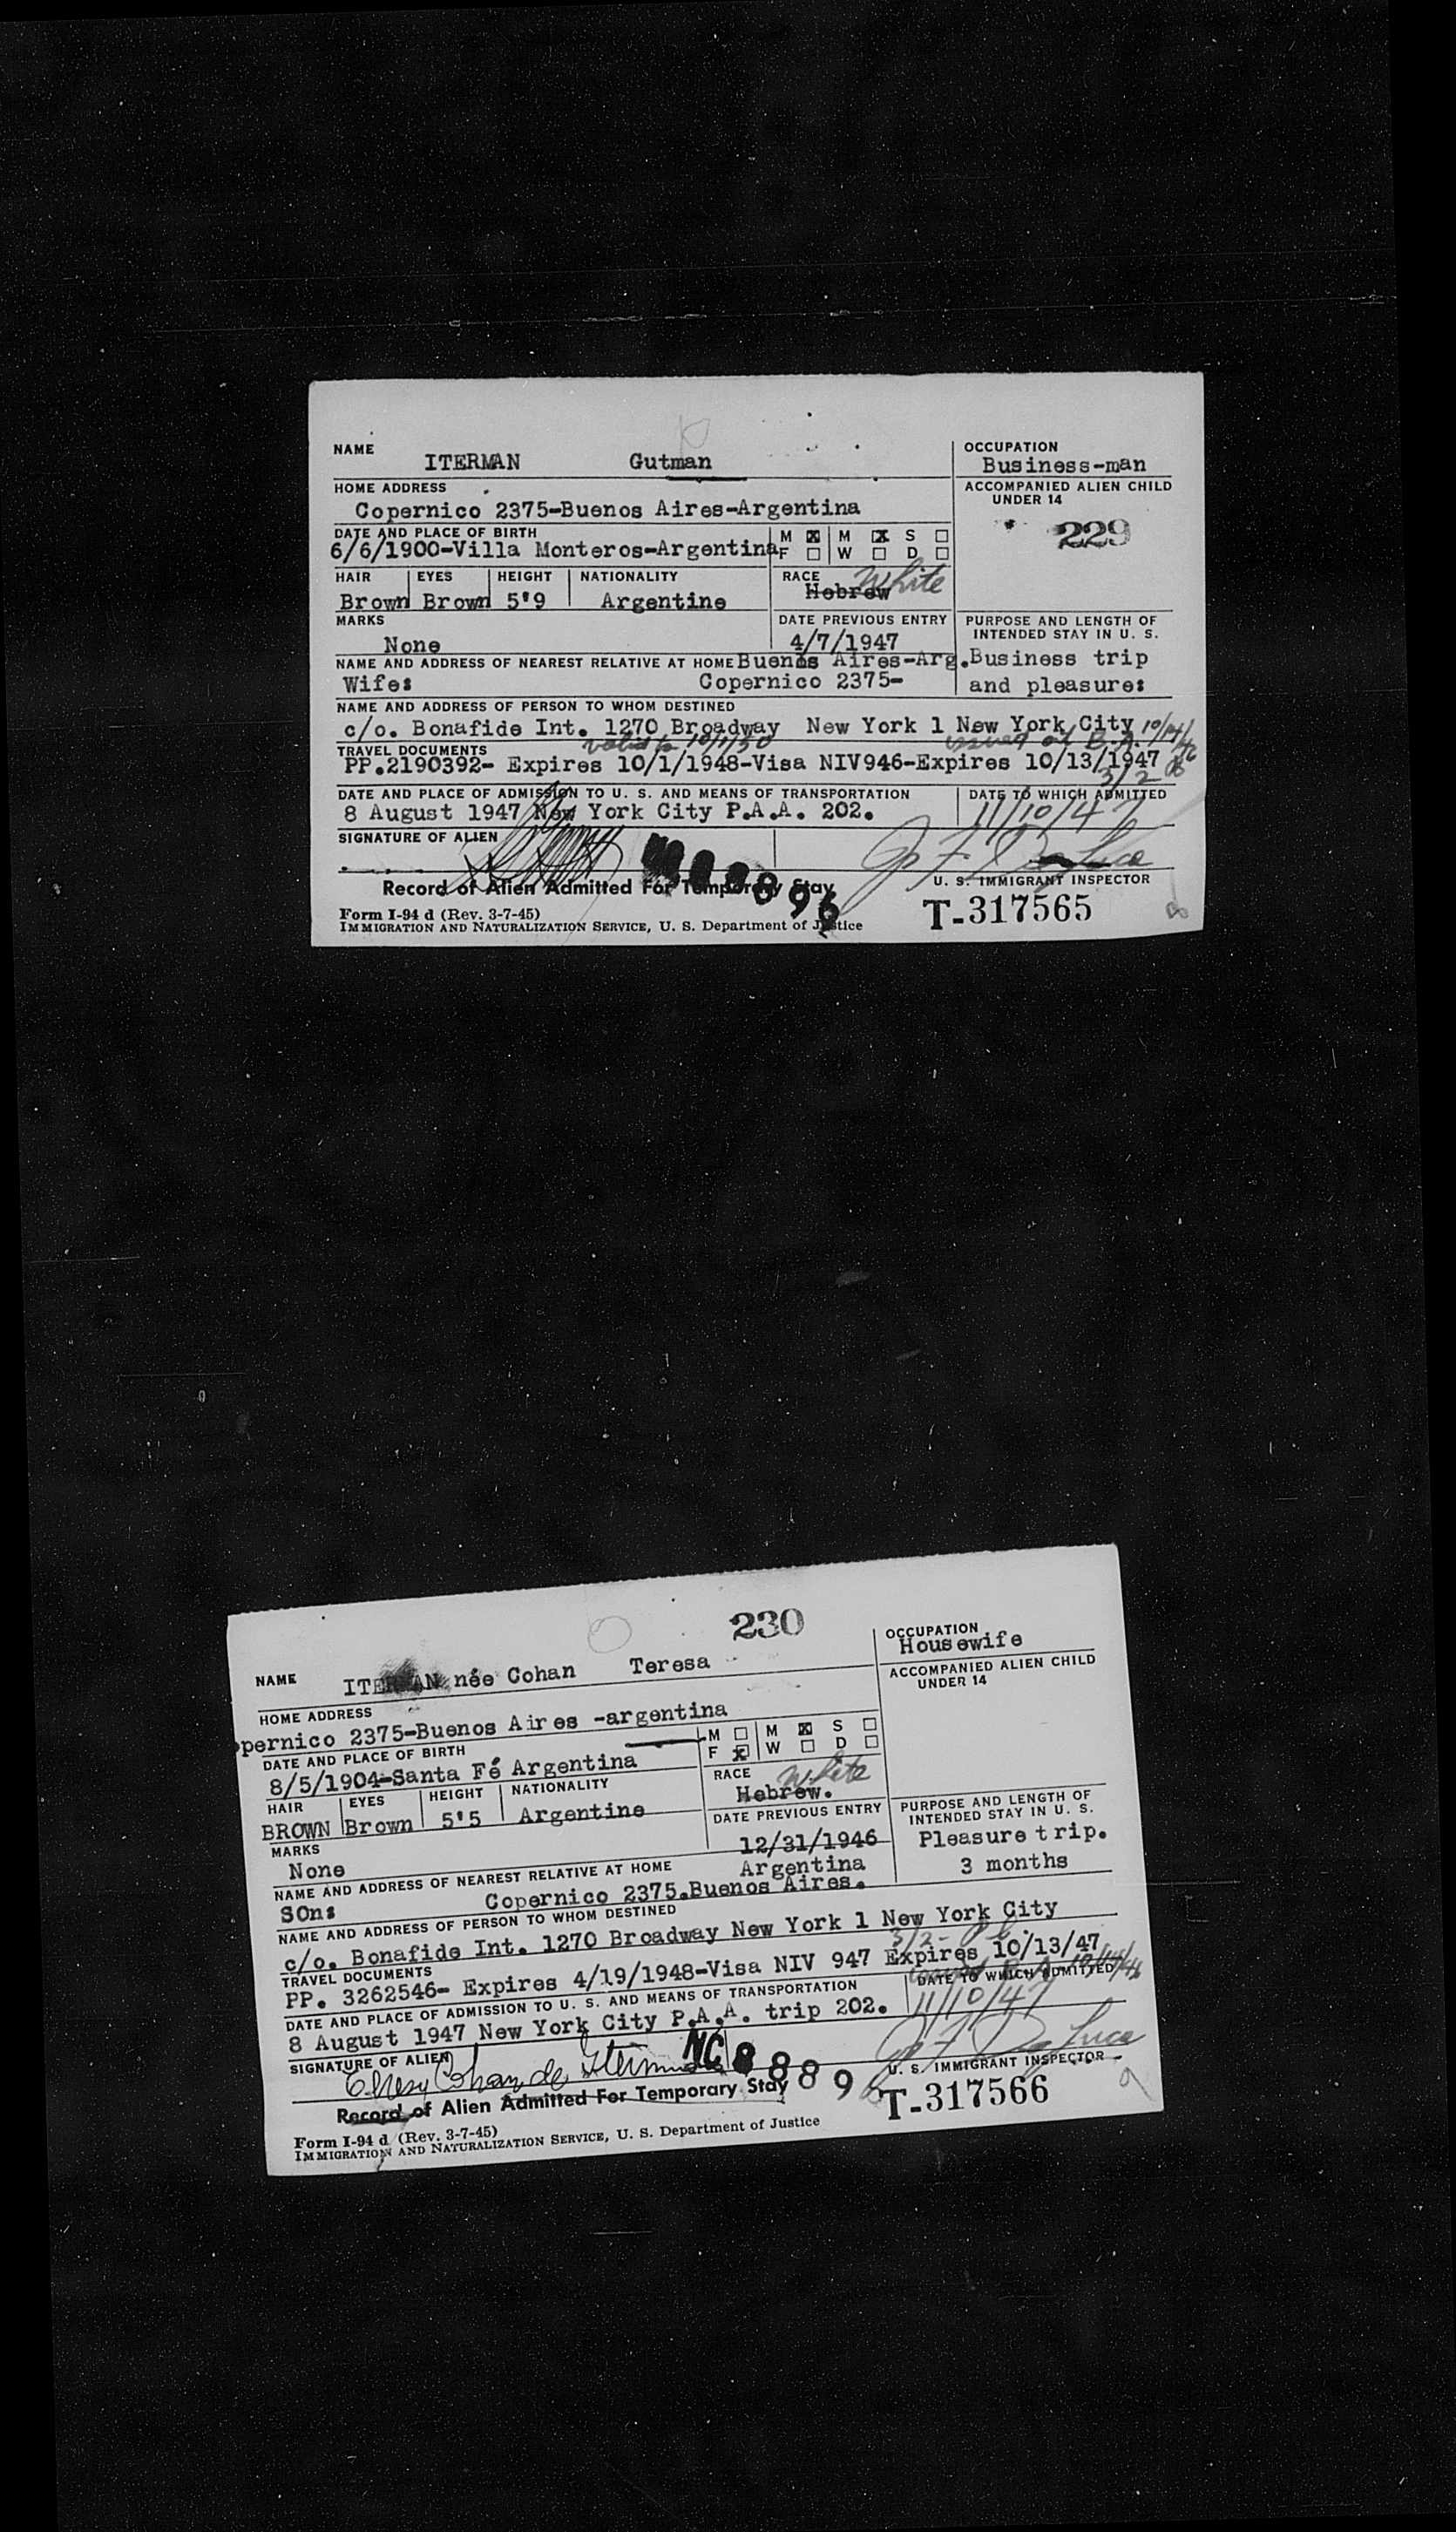 NAME ITERMAN Gutman
OCCUPATION Business-man
HOME ADDRESS
Copernico 2375-Buenos Aires-Argentina
ACCOMPANIED ALIEN CHILD UNDER 14
229
DATE AND PLACE OF BIRTH
6/6/1900-Villa Monteros-Argentina
M ☒ F ☐ M ☒ S ☐ W ☐ D ☐
HAIR EYES HEIGHT NATIONALITY RACE
Brown Brown 5'9 Argentine Hebrew White
MARKS
None
DATE PREVIOUS ENTRY
4/7/1947
PURPOSE AND LENGTH OF INTENDED STAY IN U. S.
Business trip
and pleasure:
NAME AND ADDRESS OF NEAREST RELATIVE AT HOME Buenos Aires-Arg.
Wife: Copernico 2375-
NAME AND ADDRESS OF PERSON TO WHOM DESTINED
c/o. Bonafide Int. 1270 Broadway New York 1 New York City
valid to 10/1/50 issued at B.A. 10/14/46
TRAVEL DOCUMENTS
PP.2190392- Expires 10/1/1948-Visa NIV946-Expires 10/13/1947
3/2
DATE AND PLACE OF ADMISSION TO U. S. AND MEANS OF TRANSPORTATION
8 August 1947 New York City P.A.A. 202.
DATE TO WHICH ADMITTED
11/10/47
SIGNATURE OF ALIEN
U. S. IMMIGRANT INSPECTOR
Record of Alien Admitted For Temporary Stay
896
Form I-94 d (Rev. 3-7-45)
IMMIGRATION AND NATURALIZATION SERVICE, U. S. Department of Justice
T-317565
8
230
NAME ITERMAN née Cohan Teresa
OCCUPATION
Housewife
HOME ADDRESS
opernico 2375-Buenos Aires -argentina
ACCOMPANIED ALIEN CHILD UNDER 14
DATE AND PLACE OF BIRTH
8/5/1904-Santa Fé Argentina
M ☐ F ☒ M ☒ S ☐ W ☐ D ☐
HAIR EYES HEIGHT NATIONALITY RACE
BROWN Brown 5'5 Argentine Hebrew. White
MARKS
None
DATE PREVIOUS ENTRY
12/31/1946
PURPOSE AND LENGTH OF INTENDED STAY IN U. S.
Pleasure trip.
3 months
NAME AND ADDRESS OF NEAREST RELATIVE AT HOME Argentina
SOn: Copernico 2375.Buenos Aires.
NAME AND ADDRESS OF PERSON TO WHOM DESTINED
c/o. Bonafide Int. 1270 Broadway New York 1 New York City
3/2-
TRAVEL DOCUMENTS
PP. 3262546- Expires 4/19/1948-Visa NIV 947 Expires 10/13/47
DATE AND PLACE OF ADMISSION TO U. S. AND MEANS OF TRANSPORTATION
8 August 1947 New York City P.A.A. trip 202.
DATE TO WHICH ADMITTED
11/10/47
SIGNATURE OF ALIEN
U. S. IMMIGRANT INSPECTOR
NC 8889
Record of Alien Admitted For Temporary Stay
Form I-94 d (Rev. 3-7-45)
IMMIGRATION AND NATURALIZATION SERVICE, U. S. Department of Justice
T-317566
9